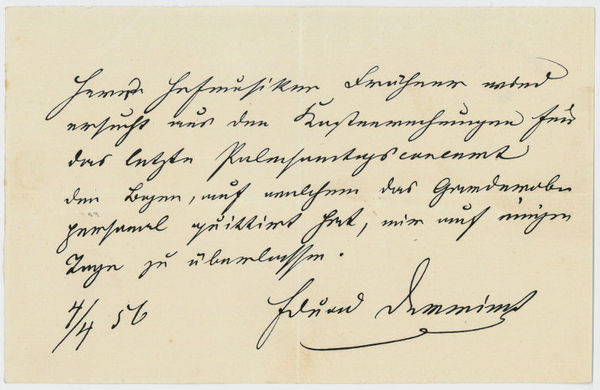 Herrn Hofmusiker Frühner wird
ersucht aus den Kostenrechnungen für
das letzte Palmsonntagsconcert
den Bogen, auf welchem das Garderobe-
personal quittirt hat, mir auf einige
Tage zu überlassen.
4/4 56
Eduard